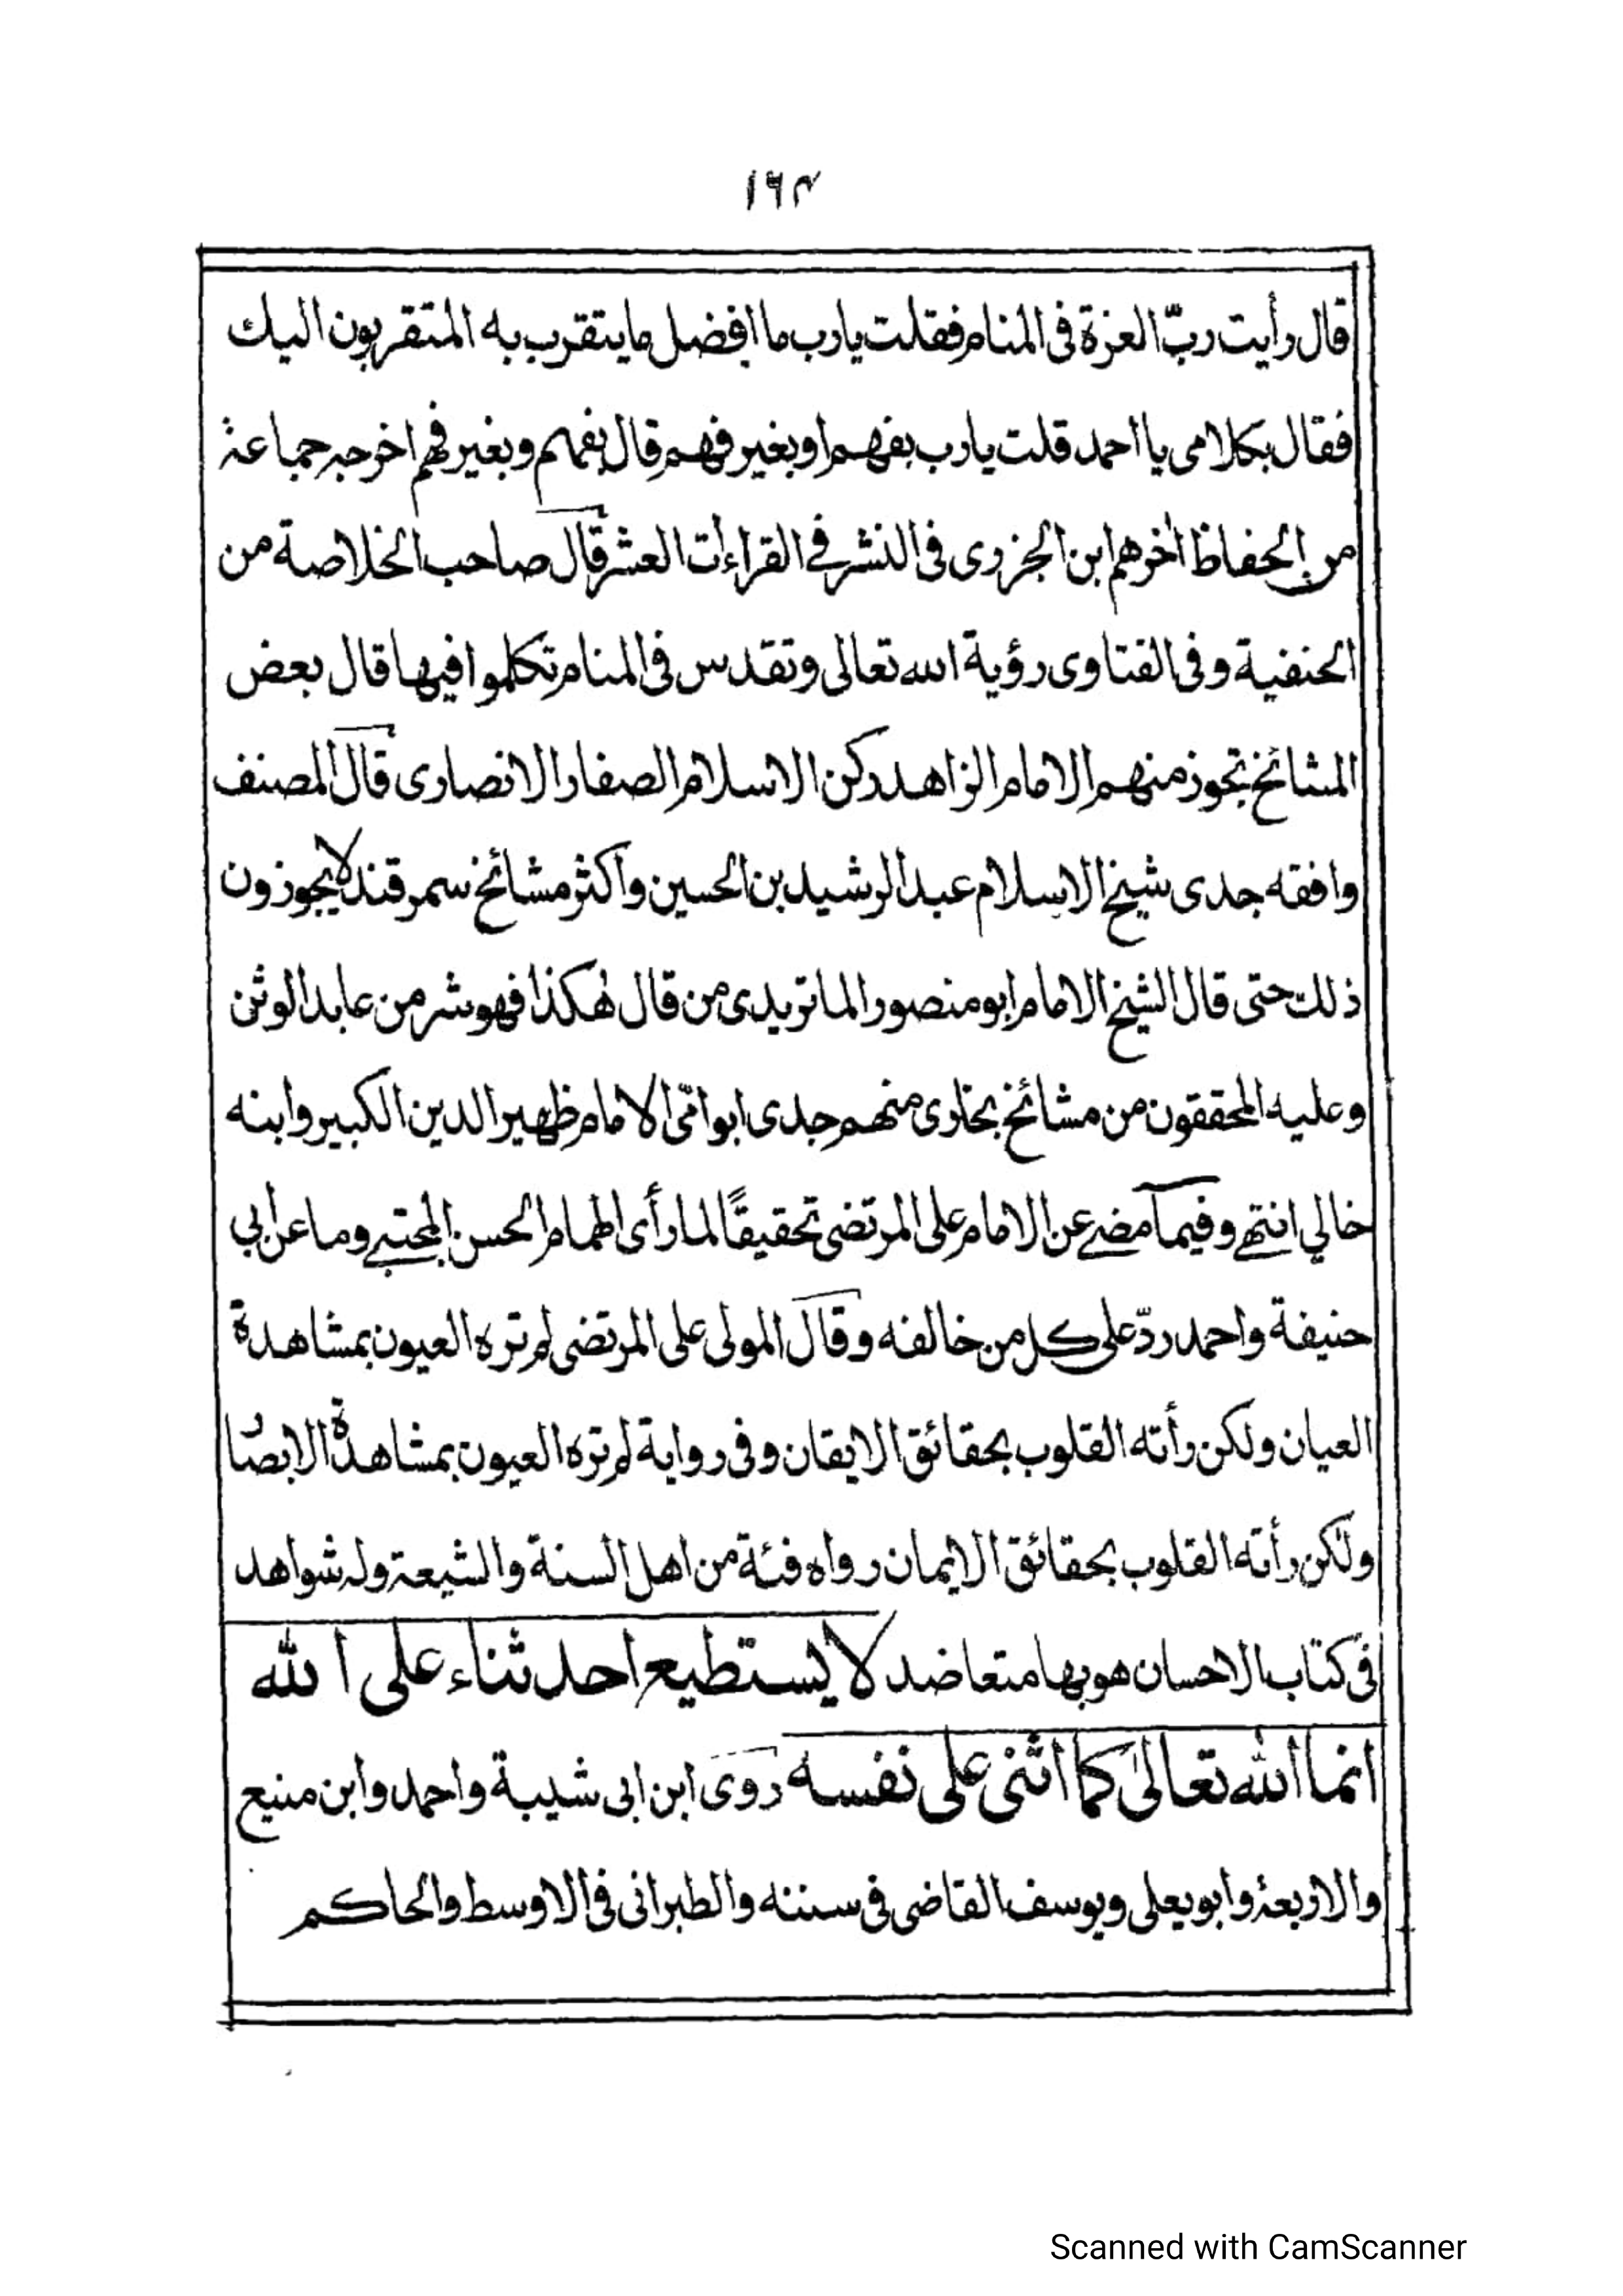 ١٦٣
قال رأيت ربّ العزة فى المنام فقلت يارب ما افضل ما يتقرب به المتقربون اليك
فقال بكلامى يا احمد قلت يارب بفهم او بغير فهم قال بفهم وبغير فهم اخرجه جماعة
من الحفاظ أخرهم ابن الجزرى فى النشر فے القراءات العشر قال صاحب الخلاصة من
الحنفية وفى الفتاوى رؤية الله تعالى وتقدس فى المنام تكلموا فيها قال بعض
المشائخ تجوز منهم الامام الزاهد ركن الاسلام الصفار الانصارى قال المصنف
وافقه جدى شيخ الاسلام عبد الرشيد بن الحسين واكثر مشائخ سمرقند لا يجوزون
ذلك حتى قال الشيخ الامام ابو منصور الماتريدى من قال هٰكذا فهو شر من عابد الوثن
وعليه المحققون من مشائخ بخارى منهم جدى ابو امّى الامام ظهير الدين الكبير وابنه
خالي انتهے وفيما مضے عن الامام على المرتضى تحقيقًا لما رأى الهمام الحسن المجتبے وما عن أبي
حنيفة واحمد ردّ على كل من خالفه وقال المولى على المرتضى لم تره العيون بمشاهدة
العيان ولكن رأته القلوب بحقائق الايقان وفى رواية لم تره العيون بمشاهدة الابصا
ولكن رأته القلوب بحقائق الايمان رواه فئة من اهل السنة والشيعة وله شواهد
فى كتاب الاحسان هو بها متعاضد لا يستطيع احد ثناء على الله
انما الله تعالىٰ كما اثنى على نفسه روى ابن ابى شيبة واحمد وابن منيع
والاربعة وابو يعلى ويوسف القاضى فى سننه والطبرانى فى الاوسط والحاكم
Scanned with CamScanner